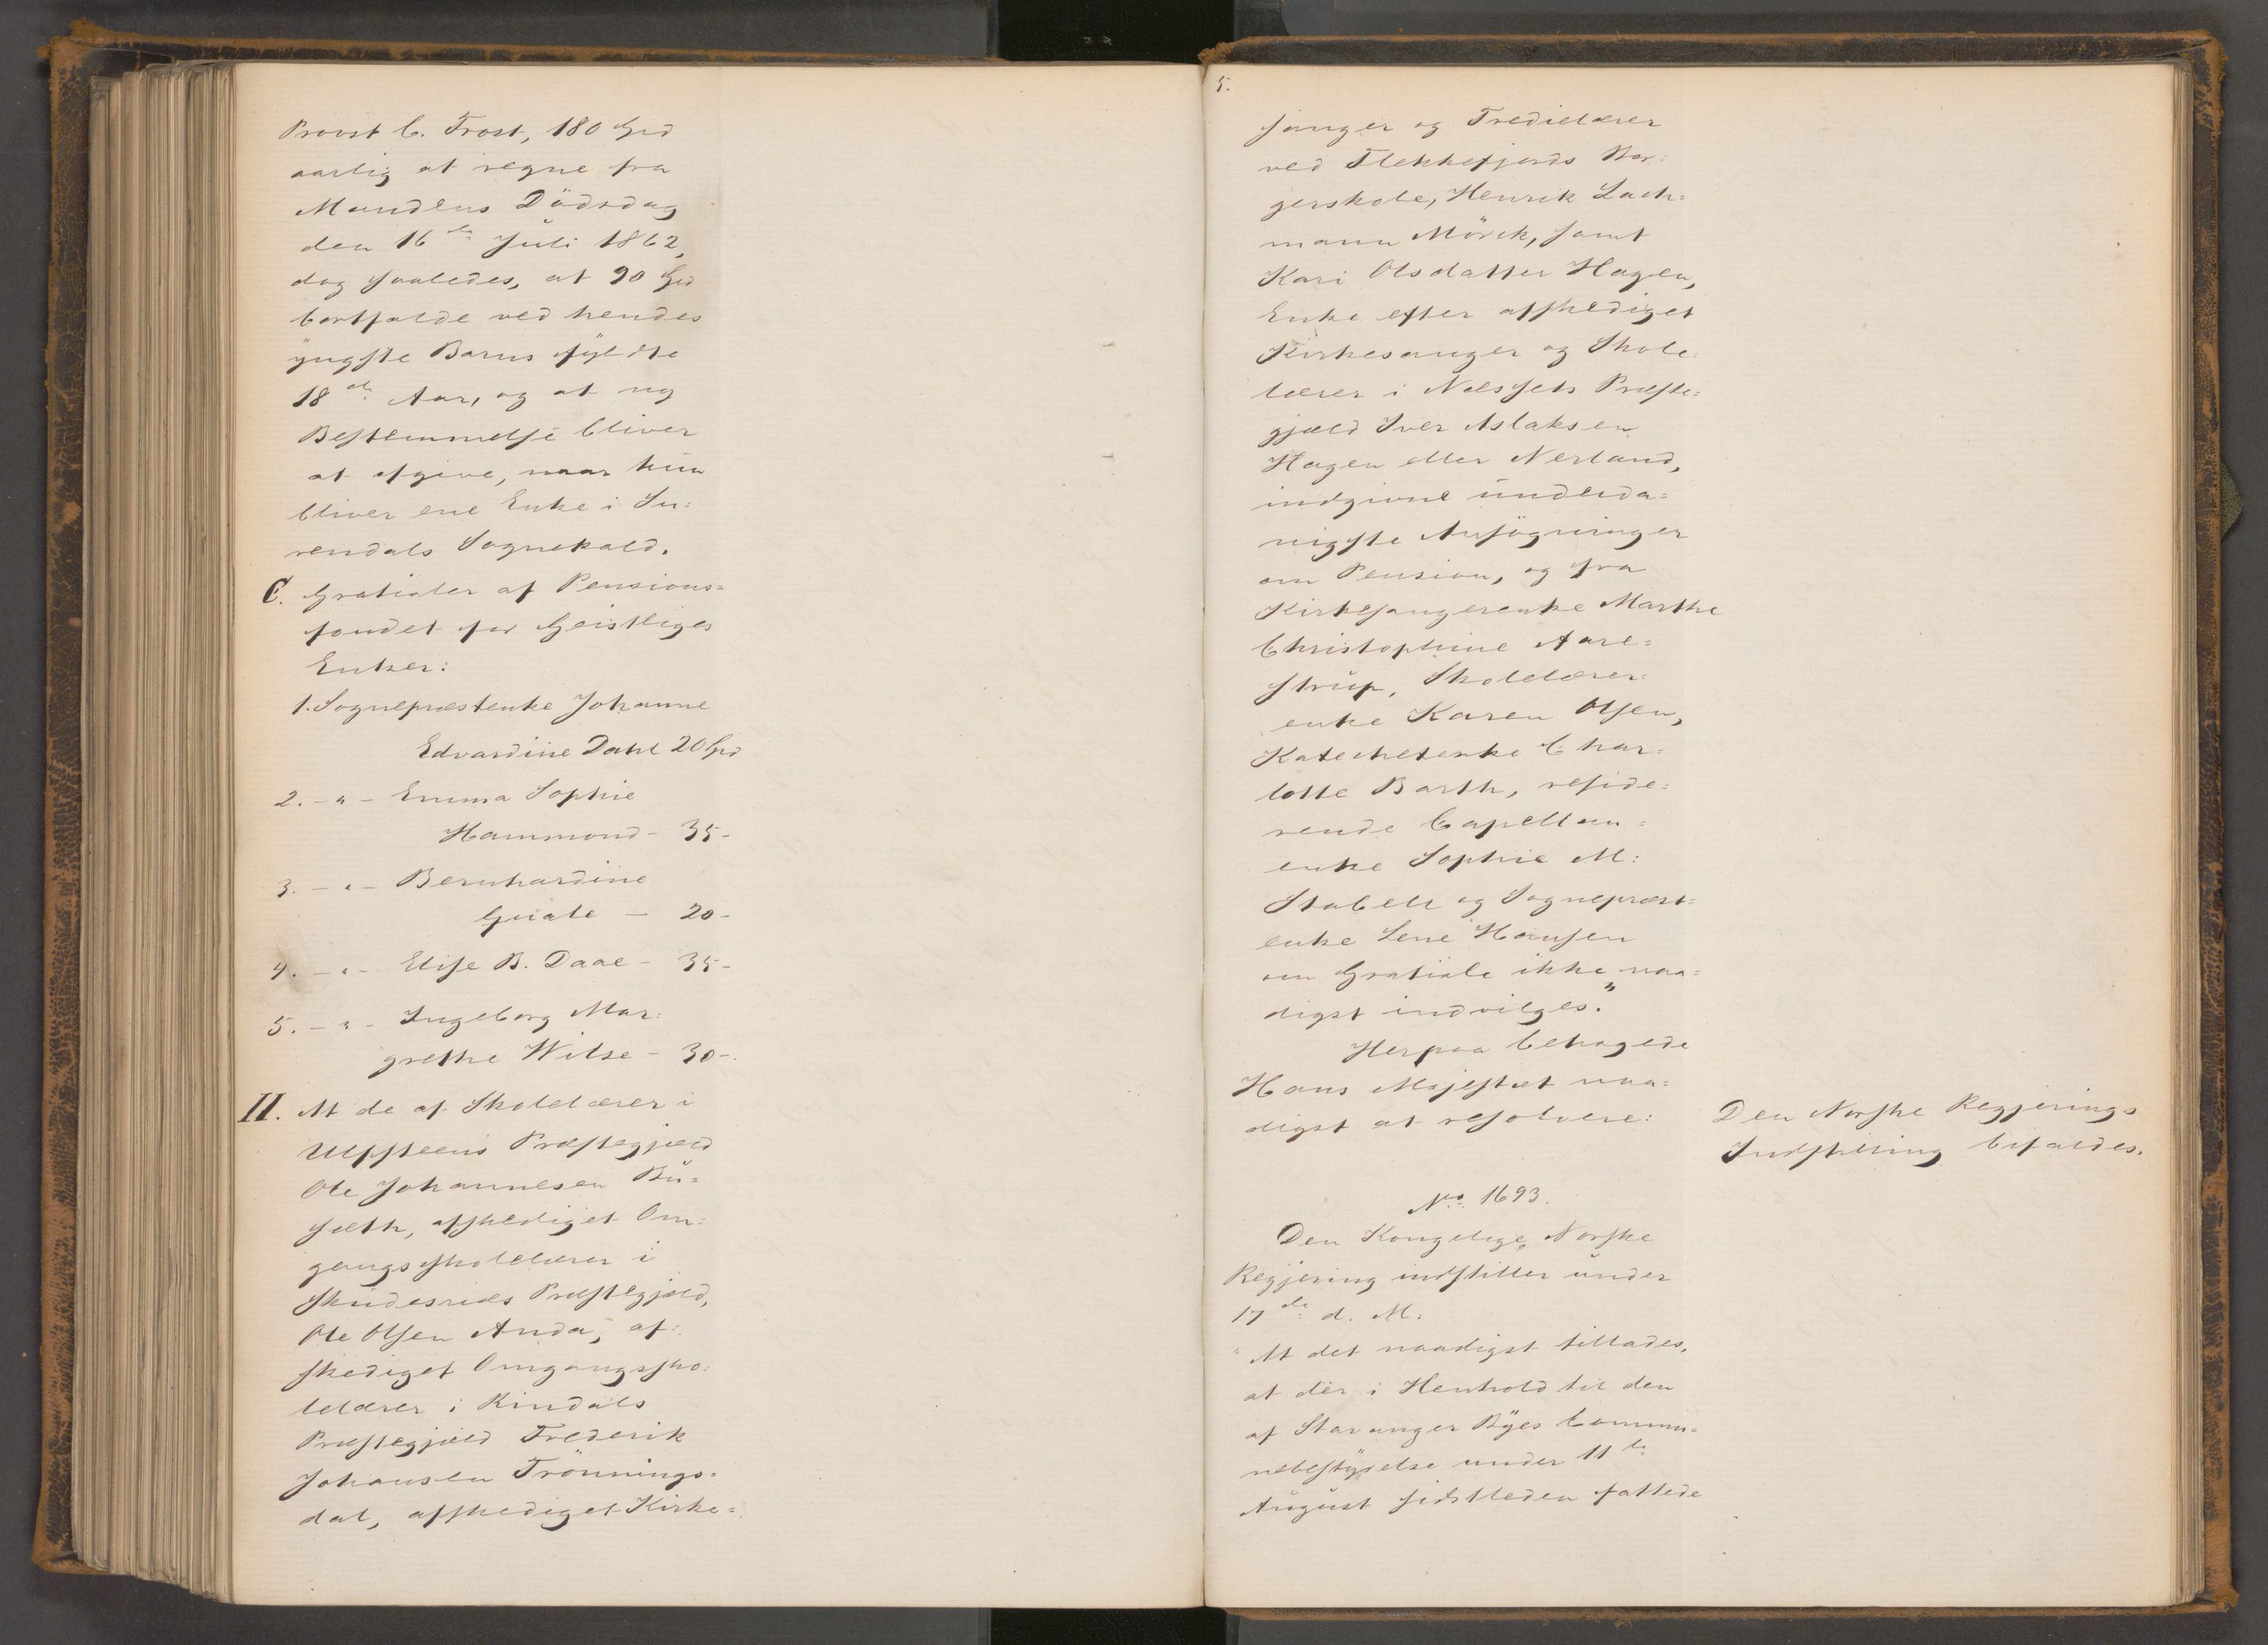 Provst C. Frost, 180 Spd
aarlig at regne fra
Mandens Dödsdag
den 16de Juli 1862,
dog saaledes, at 90 Spd
bortfalde ved hendes
yngste Barns fyldte
18de Aar, og at ny
Bestemmelse bliver
at afgive, naar hun
bliver ene Enke i Su=
rendals Sognekald.
C. Gratialer af Pensions=
fondet for Geistliges
Enker:
1. Sognepræstenke Johanne
Edvardine Dahl 20 Spd
2. - " - Emma Sophie
Hammond - 35 -
3. - " - Bernhardine
Qviale - 20 -
4. - " - Elise B. Daae - 35 -
5. - " - Ingeborg Mar=
grethe Wilse - 30 -
II. At de af Skolelærer i
Ulfsteens Præstegjæld
Ole Johannesen Bu=
sæth, afskediget Om=
gangsskolelærer i
Skudesnæs Præstegjæld,
Ole Olsen Anda, af=
skediget Omgangssko=
lelærer i Rindals
Præstegjæld Frederik
Johansen Trönnings=
dal, afskediget Kirke=
5.
sanger og Tredielærer
ved Flekkefjords Bor=
gerskole, Henrik Lach=
mann Mörch, samt
Kari Olsdatter Hagen,
Enke efter afskediget
Kirkesanger og Skole=
lærer i Næssets Præste=
gjæld Iver Aslaksen
Hagen eller Nerland,
indgivne underda=
nigste Ansögninger
om Pension, og fra
Kirkesangerenke Marthe
Christophine Aare=
strup, Skolelærer=
enke Karen Olsen,
Katechetenke Char=
lotte Barth, reside=
rende Capellan=
enke Sophie M:
Stabell og Sognepræst=
enke Lene Hansen
om Gratiale ikke naa=
digst indvilges."
Herpaa behagede
Hans Majestæt naa=
digst at resolvere:
Den Norske Regjerings
Indstilling bifaldes.
No 1693.
Den Kongelige Norske
Regjering indstiller under
17de d. M.
"At det naadigst tillades,
at der i Henhold til den
af Stavanger Byes Commu=
nebestyrelse under 11te
August sidstleden fattede